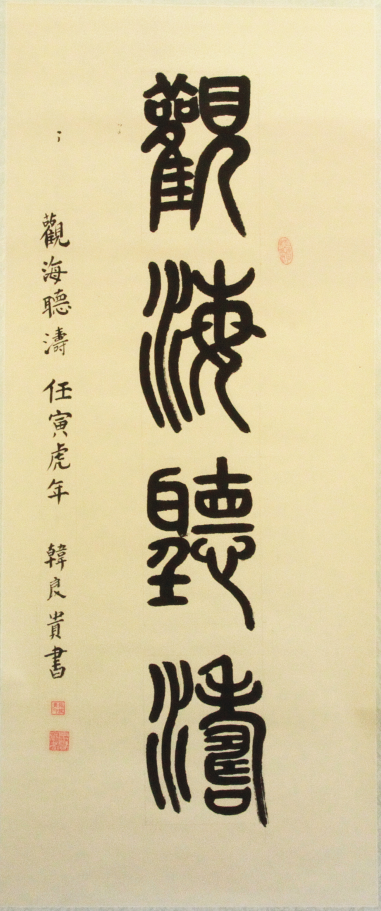 觀海聽濤
觀海聽濤 任寅虎年 韓良貴書